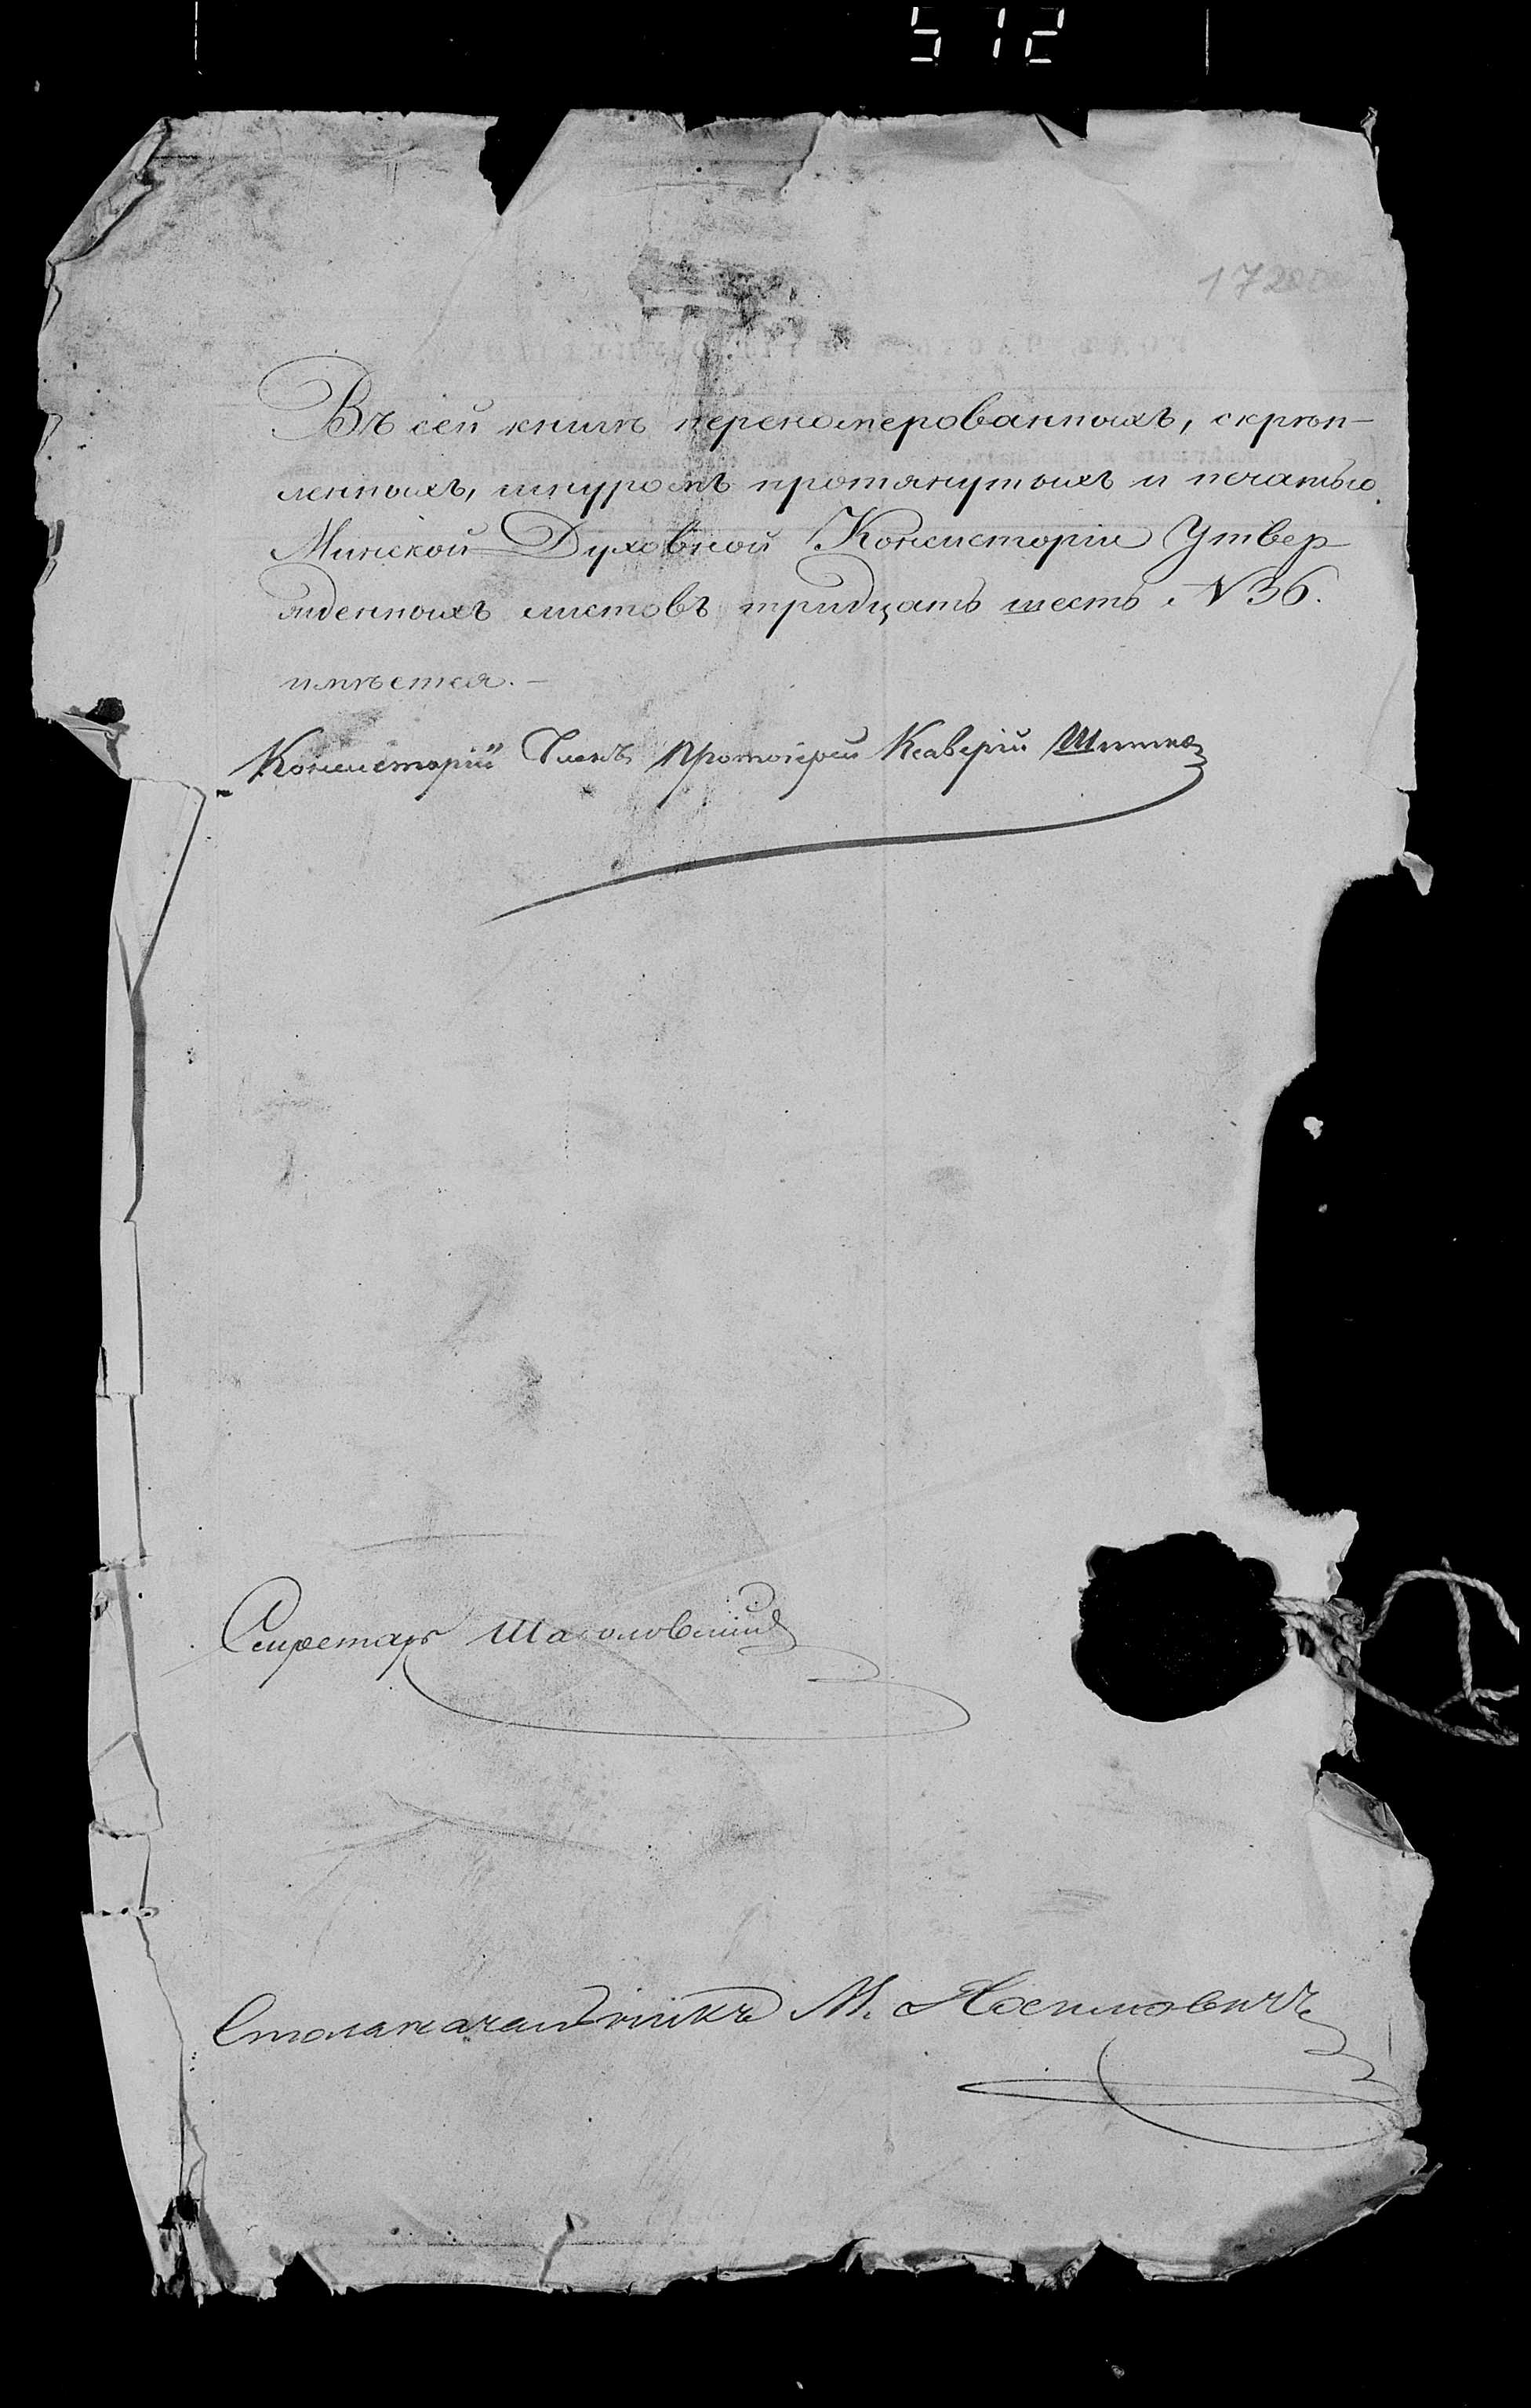 512
172
Въ сей книгѣ перекомерованныхъ, скрѣп-
ленныхъ, шнуромъ протянутыхъ и печатью
Минской Духовной Консисторіи Утвер
жденныхъ листовъ тридцать шесть №36.
имѣется.-
Консисторіи Членъ Протоіерей Ксаверій
Секретарь
Столоначальникъ М.